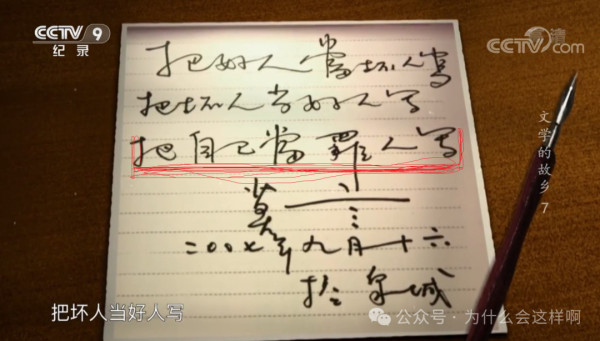 CCTV 9
纪录
CCTV.com
把好人當坏人寫
把坏人当好人写
把自己當罪人写
莫言
二00七年九月十六
于泉城
文学的故乡 7
把坏人当好人写
公众号·为什么会这样啊